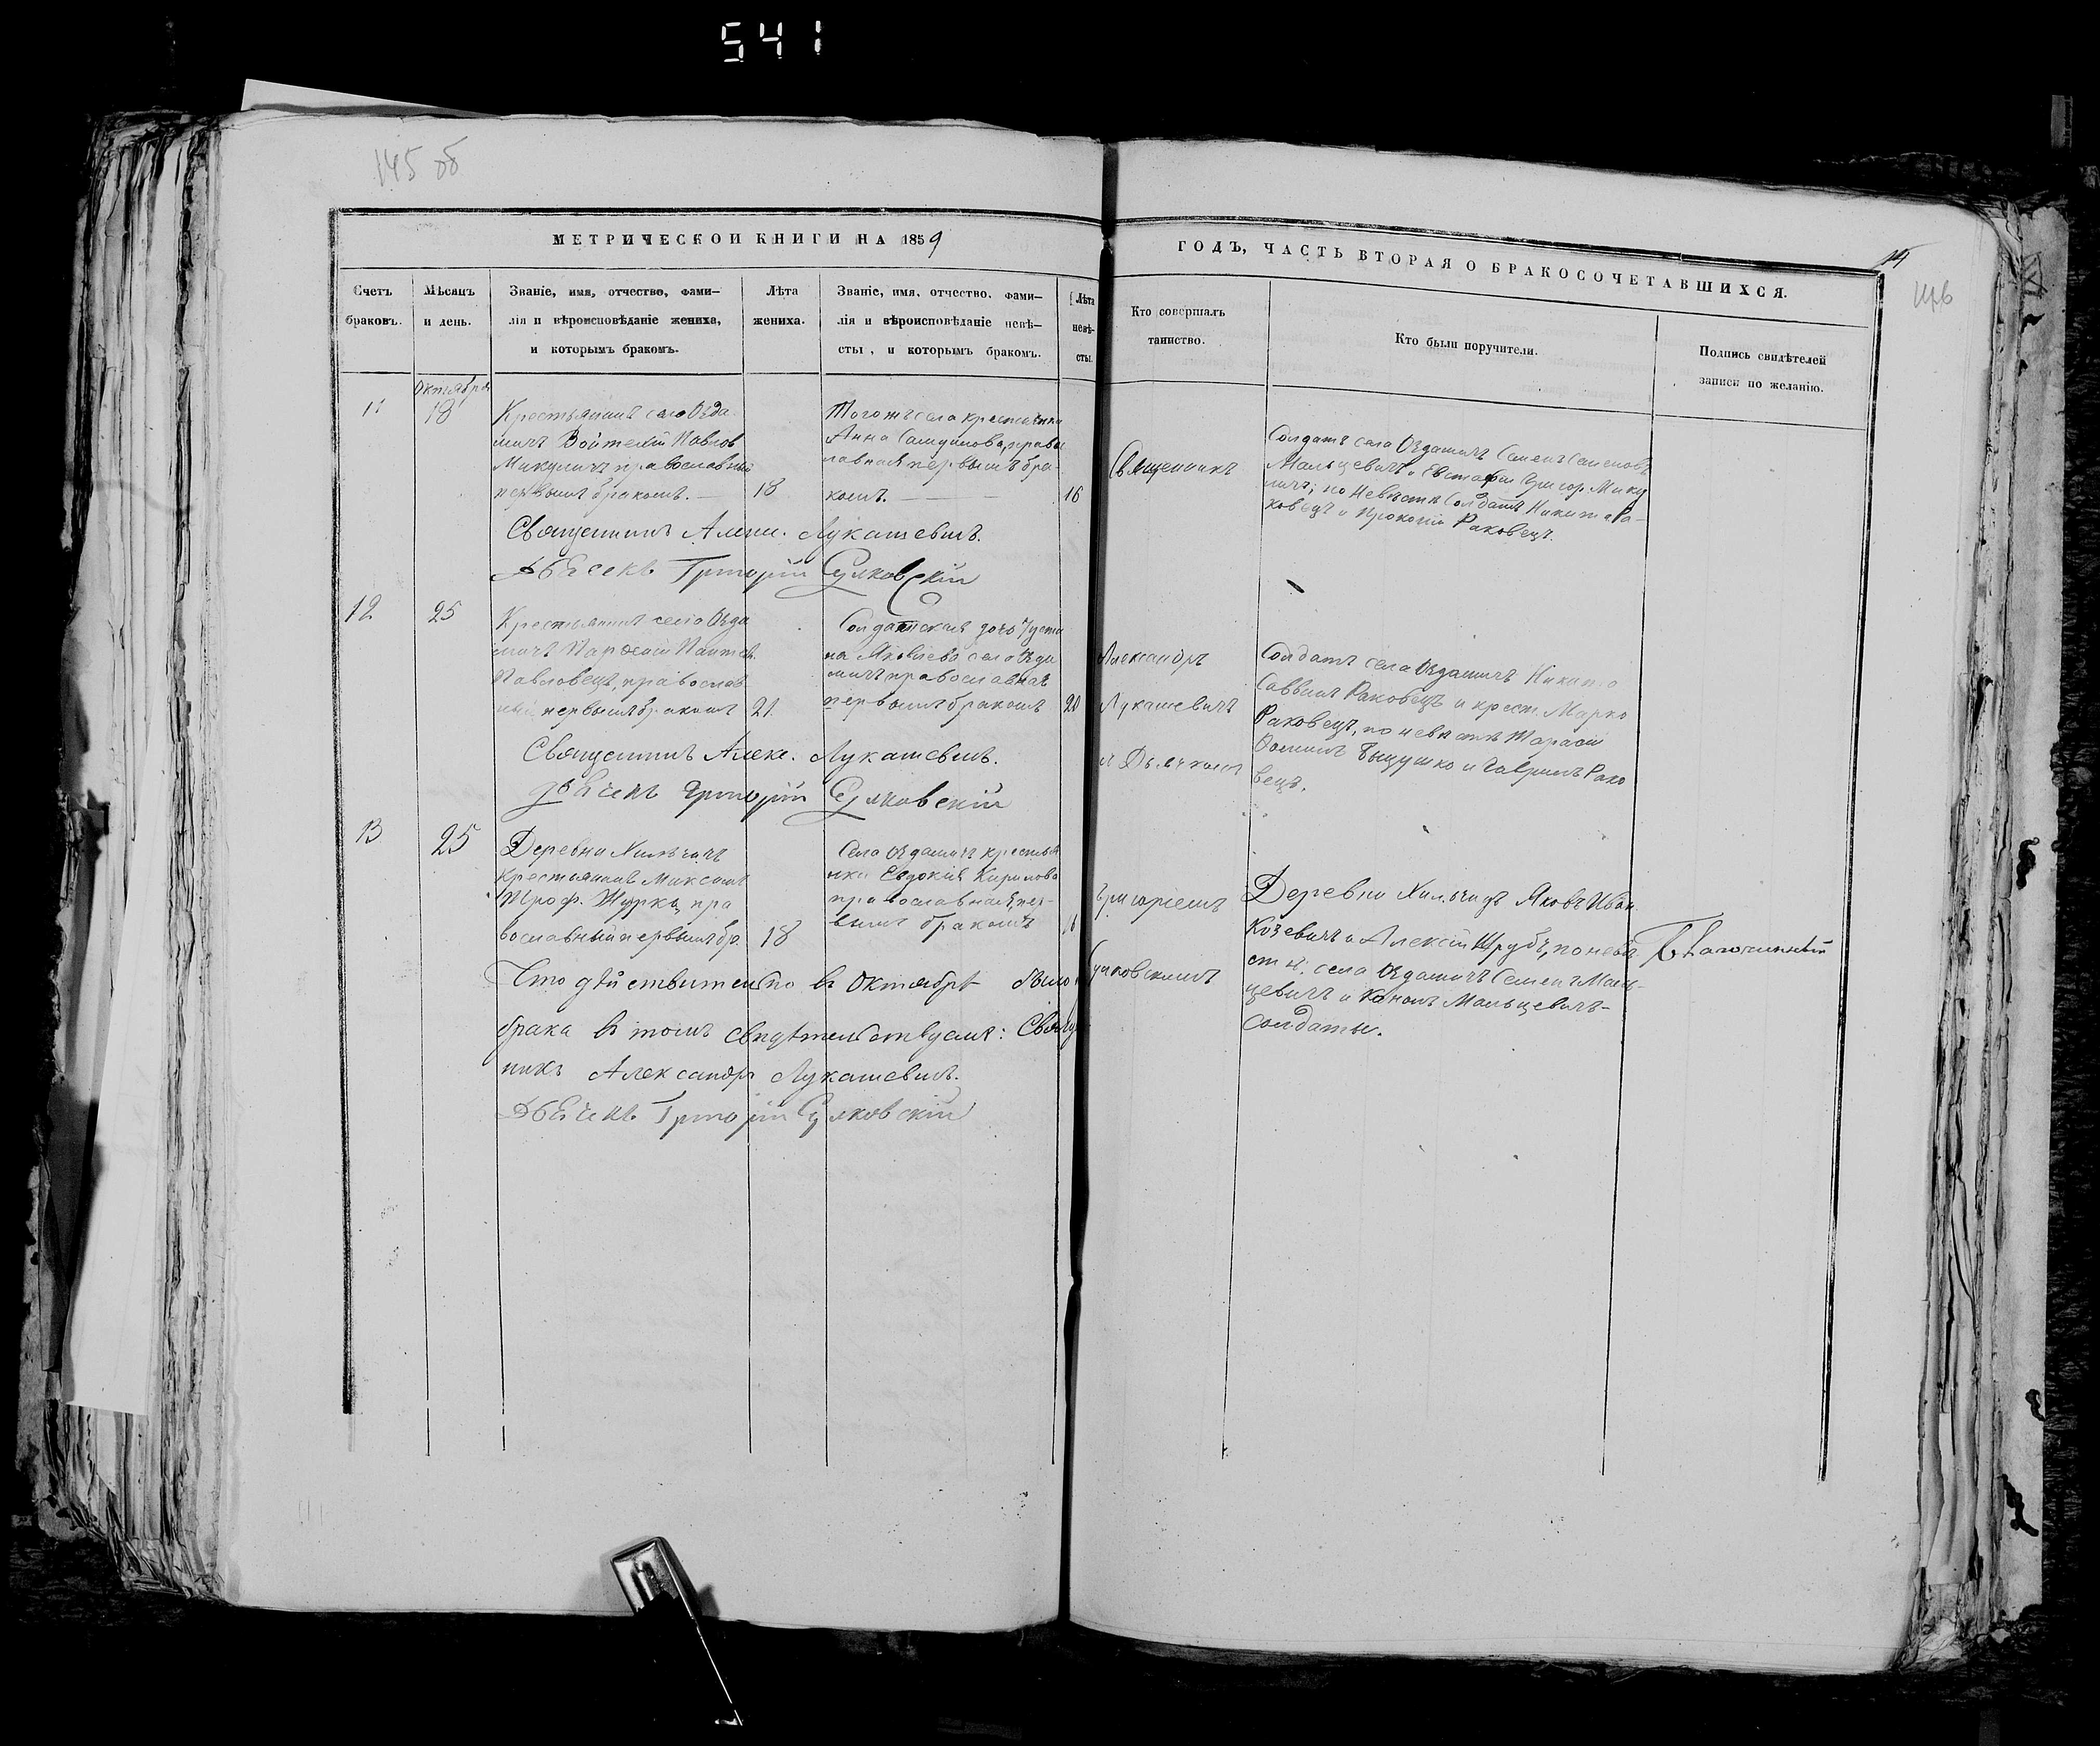 541
145 об
МЕТРИЧЕСКОЙ КНИГИ НА 1859
ГОДЪ, ЧАСТЬ ВТОРАЯ О БРАКОСОЧЕТАВШИХСЯ.
146
Счетъ
браковъ.
Мѣсяцъ
и день.
Званіе, имя, отчество, фами-
лія и вѣроисповѣданіе жениха,
и которымъ бракомъ.
Лѣта
жениха.
Званіе, имя, отчество, фами-
лія и вѣроисповѣданіе невѣ-
сты, и которымъ бракомъ.
Лѣта
невѣ-
сты.
Кто совершалъ
таинство.
Кто были поручители.
Подпись свидѣтелей
записи по желанію.
Октября
11
18
Крестьянинъ села Озда
мичъ Павлов
Микуличъ православный
первымъ бракомъ.
18
Того жъ села крестьянка
Анна правос
лавная первымъ бра-
комъ.
16
Священникъ
Солдатъ села Оздамичъ Семенъ Семеновъ
Мальцевичъ и Евстафій Григор. Мику
личъ; по невѣстѣ Солдатъ Никита Ра-
ковецъ и Прокопій Раковецъ.
Священникъ Алекс. Лукашевичъ.
Дьячекъ Григорій Сулковскій
12
25
Крестьянинъ села Озда
мичъ
Павловецъ, православ
ный первымъ бракомъ
21.
Солдатская дочь Усти
на Яковлева села Озда
мичъ православная
первымъ бракомъ
20
Александръ
Лукашевичъ
и Дьячкомъ
Солдатъ села Оздамичъ Никита
Саввинъ Раковецъ и крест. Марко
Раковецъ, по невѣстѣ Тарасій
и Гавріилъ Рако
вецъ.
Священникъ Алекс. Лукашевичъ.
Дьячекъ Григорій Сулковскій
13
25
Деревни Хильчичъ
Крестьянинъ Максимъ
Троф. пра
вославный первымъ бр.
18
Села Оздамичъ крестья
нка Евдокія Кирилова
православная пер-
вымъ бракомъ
Григоріемъ
Сулковскимъ
Деревни Хильчицъ Яковъ Иван.
Козевичъ и Алексій по невѣ
стѣ села Оздамичъ Семенъ Маль-
цевичъ и Кононъ Мальцевичъ-
солдаты.
Благочинный
Что дѣйствительно въ Октябрѣ было
брака въ томъ свидѣтельствуемъ: Свяще
никъ Александръ Лукашевичъ.
Дьячекъ Григорій Сулковскій